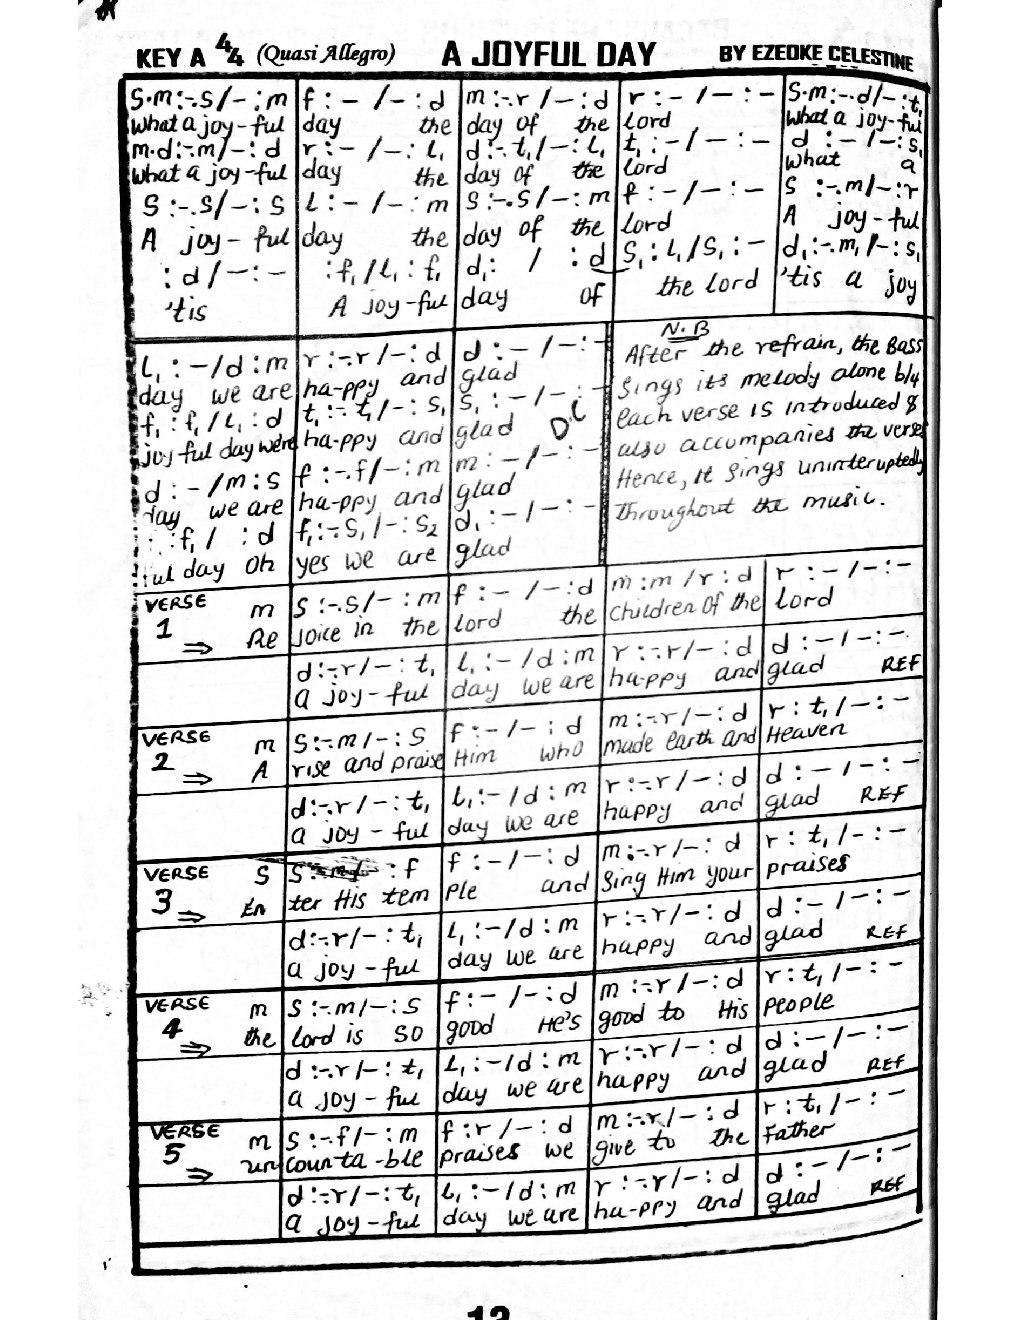 KEY A 4/4 (Quasi Allegro) A JOYFUL DAY BY EZEOKE CELESTINE
S.m:-.S/-:m | f:-/-:d | m:-.r/-:d | r:-/-:- | S.m:-.d/-:t,
What a joy-ful | day the | day of the | lord | What a joy-ful
m.d:-.m/-:d | r:-/-:l, | d:-.t,/-:l, | t,:-/-:- | d:-/-:s,
What a joy-ful | day the | day of the | lord | what a
S:-.S/-:S | l:-/-:m | S:-.S/-:m | f:-/-:- | S:-.m/-:r
A joy-ful | day the | day of the | lord | A joy-ful
:d/-:- | :f,/l,:f, | d,: / :d | S,:l,/S,:- | d,:-.m,/-:s,
'tis | A joy-ful | day of | the lord | 'tis a joy
l,:-/d:m | r:-.r/-:d | d:-/-:-
day we are | ha-ppy and | glad
f,:f,/l,:d | t,:-.t,/-:s, | s,:-/-:-
joy ful day were | ha-ppy and | glad D.C
d:-/m:s | f:-.f/-:m | m:-/-:-
day we are | ha-ppy and | glad
:f,/ :d | f,:-S,/-:S2 | d,:-/-:-
ful day Oh | yes we are | glad
N.B
After the refrain, the Bass
Sings its melody alone b/4
each verse is introduced &
also accompanies the verses
Hence, it Sings uninteruptedly
throughout the music.
VERSE 1 ⇒ m | S:-.S/-:m | f:-/-:d | m:m/r:d | r:-/-:-
Re | joice in the | lord the | children of the | Lord
d:-.r/-:t, | l,:-/d:m | r:-.r/-:d | d:-/-:-
a joy-ful | day we are | ha-ppy and | glad REF
VERSE 2 ⇒ m | S:-.m/-:S | f:-/-:d | m:-.r/-:d | r:t,/-:-
A | rise and praise | Him who | made Earth and | Heaven
d:-.r/-:t, | l,:-/d:m | r:-.r/-:d | d:-/-:-
a joy-ful | day we are | happy and | glad REF
VERSE 3 ⇒ S | S :f | f:-/-:d | m:-.r/-:d | r:t,/-:-
En | ter His tem | ple and | Sing Him your | praises
d:-.r/-:t, | l,:-/d:m | r:-.r/-:d | d:-/-:-
a joy-ful | day we are | happy and | glad REF
VERSE 4 ⇒ m | S:-.m/-:S | f:-/-:d | m:-.r/-:d | r:t,/-:-
the | lord is so | good He's | good to His | people
d:-.r/-:t, | l,:-/d:m | r:-.r/-:d | d:-/-:-
a joy-ful | day we are | happy and | glad REF
VERSE 5 ⇒ m | S:-.f/-:m | f:r/-:d | m:-.r/-:d | r:t,/-:-
un | counta-ble | praises we | give to the | Father
d:-.r/-:t, | l,:-/d:m | r:-.r/-:d | d:-/-:-
a joy-ful | day we are | ha-ppy and | glad REF